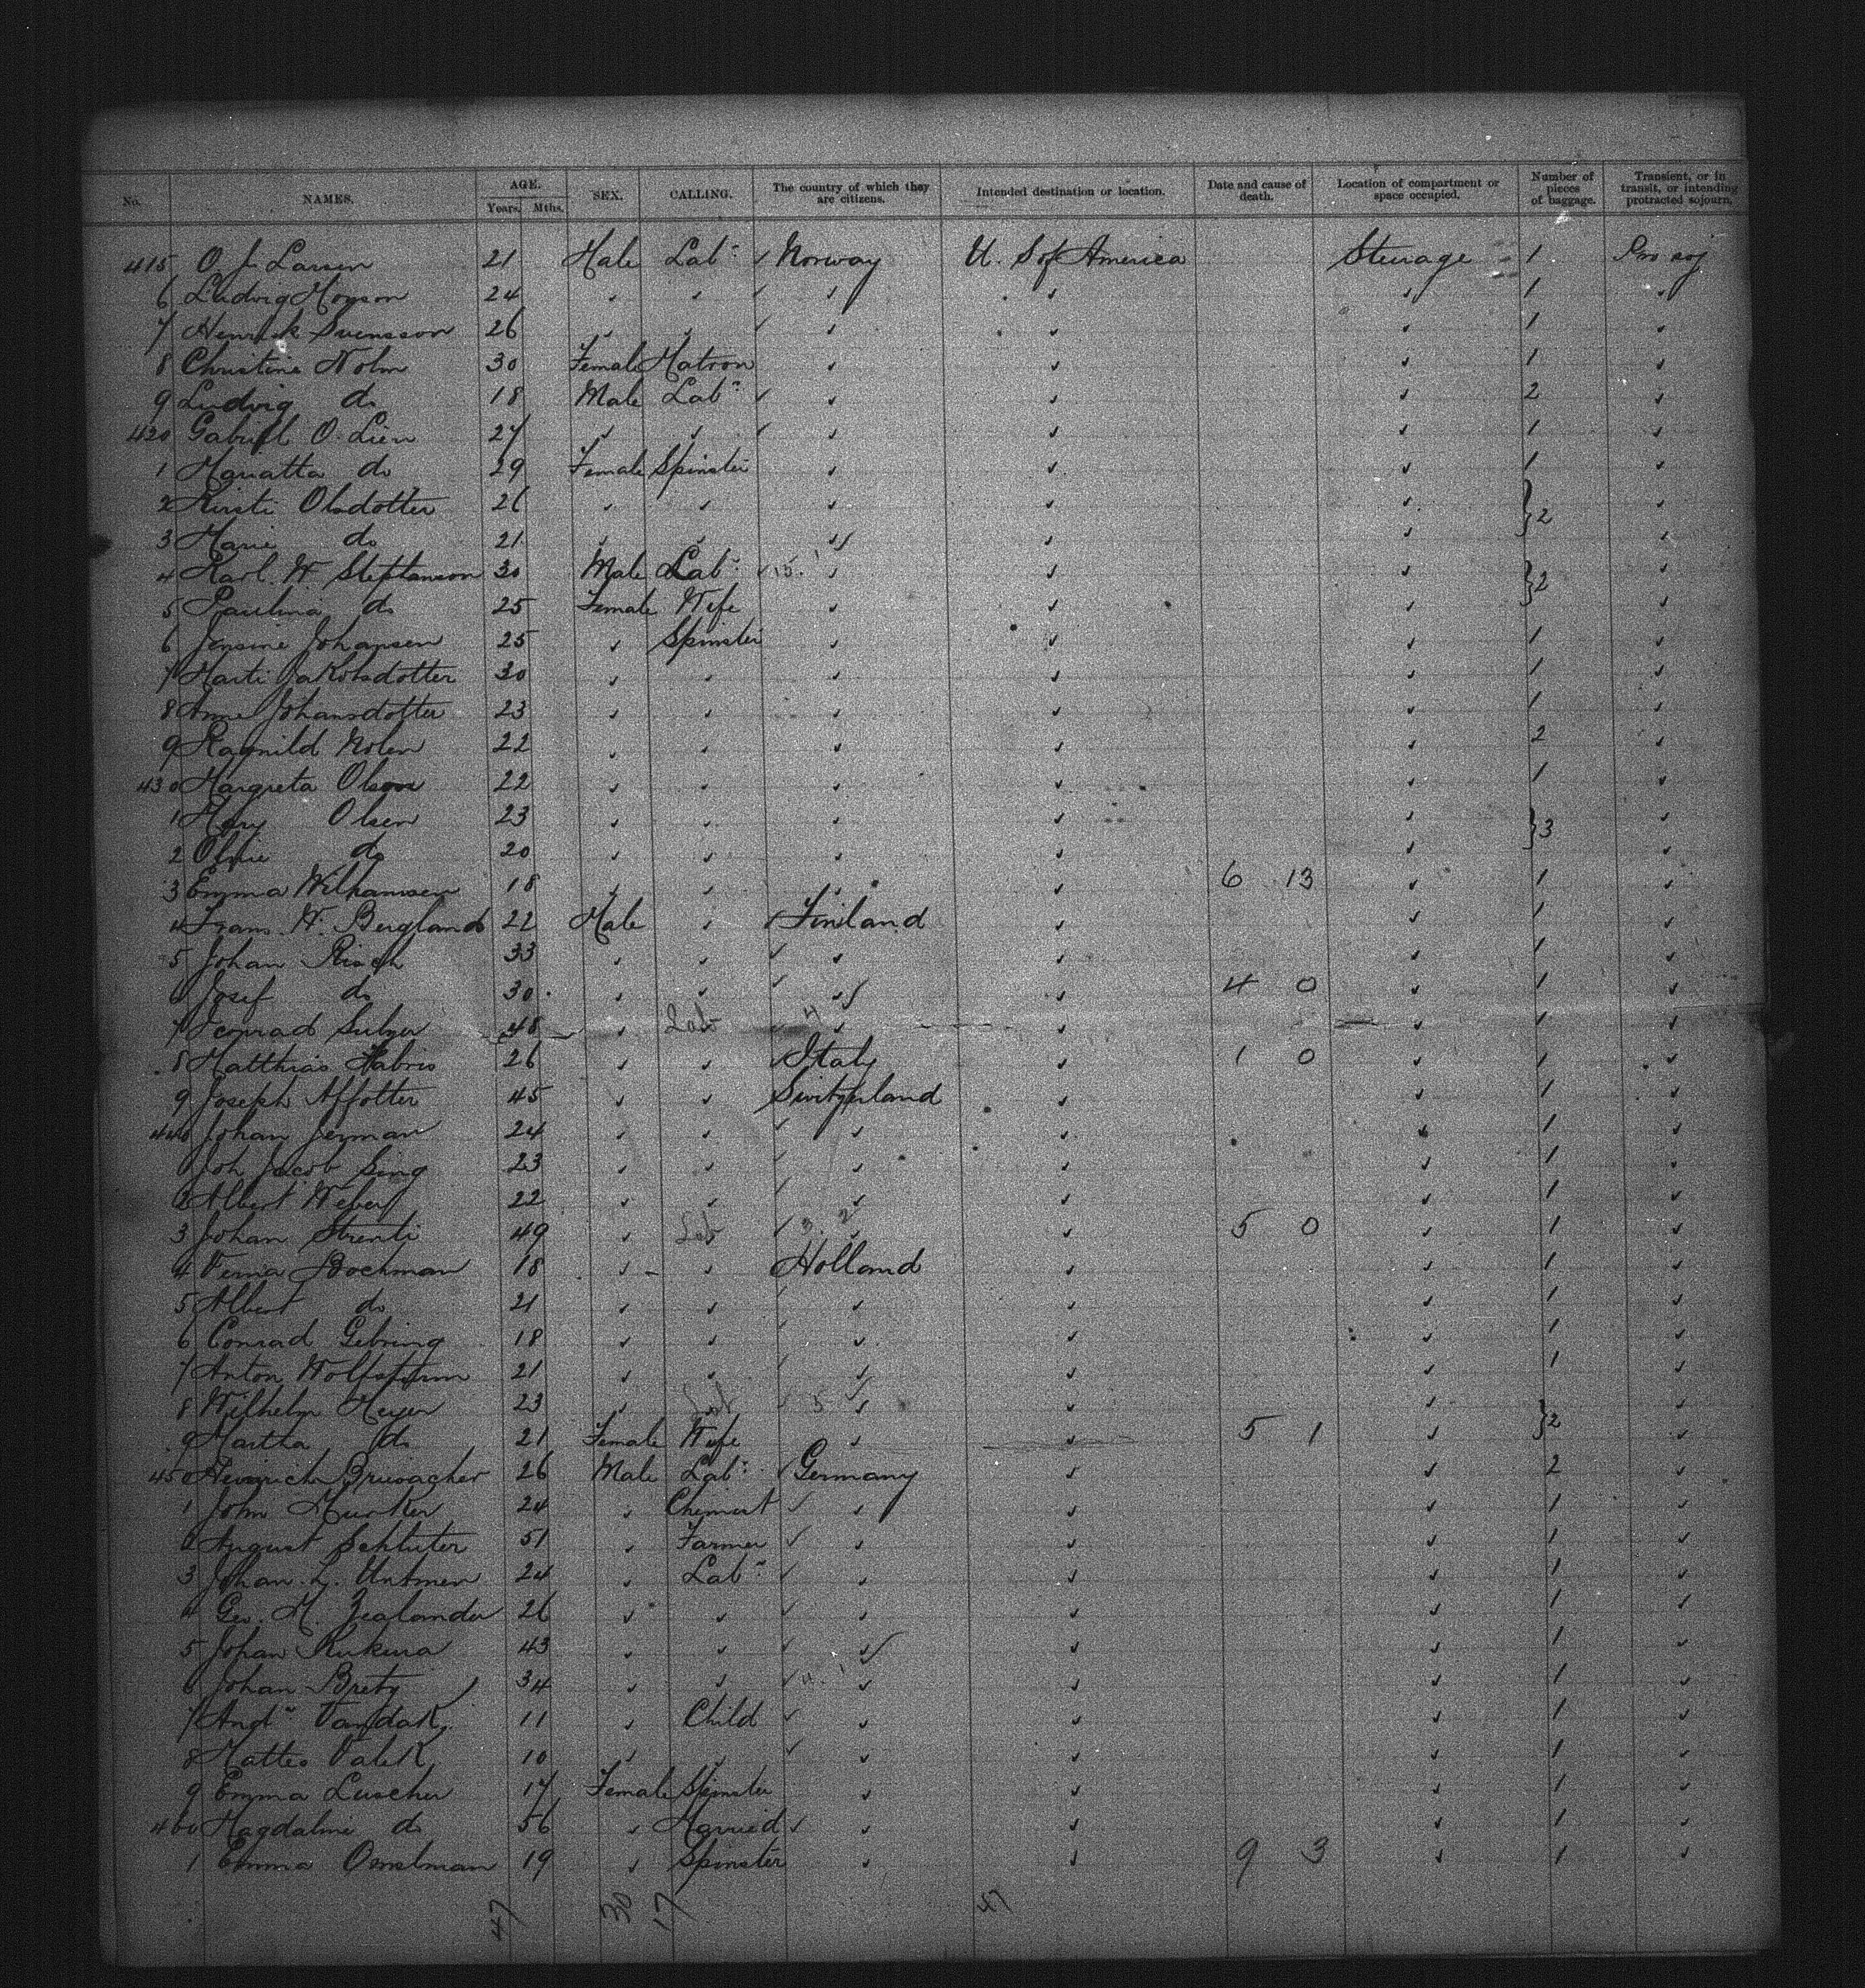 No. NAMES. AGE. Years. Mths. SEX. CALLING. The country of which they are citizens. Intended destination or location. Date and cause of death. Location of compartment or space occupied. Number of pieces of baggage. Transient, or in transit, or intending protracted sojourn.
415 O. J. Larsen 21 Male Labr ✓ Norway U. S of America Steerage 1 Pro soj
6 Ludvig Monson 24 ✓ ✓ ✓ ✓ ✓ ✓ 1 ✓
7 Henrik Svensson 26 ✓ ✓ ✓ ✓ ✓ ✓ 1 ✓
8 Christine Nolm 30 Female Matron ✓ ✓ ✓ 1 ✓
9 Ludvig do 18 Male Labr ✓ ✓ ✓ ✓ 2 ✓
420 Gabriel O. Lien 27 ✓ ✓ ✓ ✓ ✓ ✓ 1 ✓
1 Mariatta do 29 Female Spinster ✓ ✓ ✓ 1 ✓
2 Kirsti Olsdotter 26 ✓ ✓ ✓ ✓ ✓ } 2 ✓
3 Marie do 21 ✓ ✓ ✓ ✓ ✓ ✓
4 Karl. W. Stephanson 30 Male Labr ✓ 15. 1 ✓ ✓ ✓ } 2 ✓
5 Paulina do 25 Female Wife ✓ ✓ ✓ ✓
6 Jensine Johansen 25 ✓ Spinster ✓ ✓ ✓ 1 ✓
7 Marti Jakobsdotter 30 ✓ ✓ ✓ ✓ ✓ 1 ✓
8 Anne Johansdotter 23 ✓ ✓ ✓ ✓ ✓ 1 ✓
9 Ragnild Nolen 22 ✓ ✓ ✓ ✓ ✓ 2 ✓
430 Margreta Olsson 22 ✓ ✓ ✓ ✓ ✓ 1 ✓
1 Mary Olsen 23 ✓ ✓ ✓ ✓ ✓ } 3 ✓
2 Oline do 20 ✓ ✓ ✓ ✓ ✓ ✓
3 Emma Wilhamsen 18 ✓ ✓ ✓ ✓ 6 13 ✓ 1 ✓
4 Frans. W. Bergland 22 Male ✓ ✓ Finland ✓ ✓ 1 ✓
5 Johan 33 ✓ ✓ ✓ ✓ ✓ ✓ 1 ✓
6 Josef do 30 ✓ ✓ ✓ ✓ ✓ 4 0 ✓ 1 ✓
7 Sulzer 48 ✓ Lab ✓ 4 ✓ ✓ ✓ 1 ✓
8 Matthias Fabris 26 ✓ ✓ Italy ✓ 1 0 ✓ 1 ✓
9 Joseph Affolter 45 ✓ ✓ Switzerland ✓ ✓ 1 ✓
440 Johan Jerman 24 ✓ ✓ ✓ ✓ ✓ ✓ 1 ✓
1 Joh. Jacob Sing 23 ✓ ✓ ✓ ✓ ✓ ✓ 1 ✓
2 Albert Weber 22 ✓ ✓ ✓ ✓ ✓ ✓ 1 ✓
3 Johan Strenli 49 ✓ Lab ✓ 3. 2 ✓ ✓ 5 0 ✓ 1 ✓
4 Bochman 18 ✓ ✓ Holland ✓ ✓ 1 ✓
5 Albert do 21 ✓ ✓ ✓ ✓ ✓ ✓ 1 ✓
6 Conrad Gebring 18 ✓ ✓ ✓ ✓ ✓ ✓ 1 ✓
7 Anton 21 ✓ ✓ ✓ ✓ ✓ ✓ 1 ✓
8 Wilhelm Meyer 23 ✓ Lab ✓ 5 ✓ ✓ ✓ } 2 ✓
9 Martha do 21 Female Wife ✓ ✓ 5 1 ✓ ✓
450 Heinrich 26 Male Labr ✓ Germany ✓ ✓ 2 ✓
1 John Murker 24 ✓ Chemist ✓ ✓ ✓ ✓ 1 ✓
2 August Schluter 51 ✓ Farmer ✓ ✓ ✓ ✓ 1 ✓
3 Johan. L. 24 ✓ Labr ✓ ✓ ✓ ✓ 1 ✓
4 Geo. M. Zealander 26 ✓ ✓ ✓ ✓ ✓ ✓ 1 ✓
5 Johan Kukura 43 ✓ ✓ ✓ ✓ ✓ ✓ 1 ✓
6 Johan Brety 34 ✓ ✓ ✓ 4. 1 ✓ ✓ ✓ 1 ✓
7 Vandak 11 ✓ Child ✓ ✓ ✓ ✓ 1 ✓
8 Matteo Valek 10 ✓ ✓ ✓ ✓ ✓ ✓ 1 ✓
9 Emma Luscher 17 Female Spinster ✓ ✓ ✓ 1 ✓
460 Magdalene do 56 ✓ Married ✓ ✓ ✓ ✓ 1 ✓
1 Emma Omelman 19 ✓ Spinster ✓ ✓ 9 3 ✓ 1 ✓
47 30 17 47